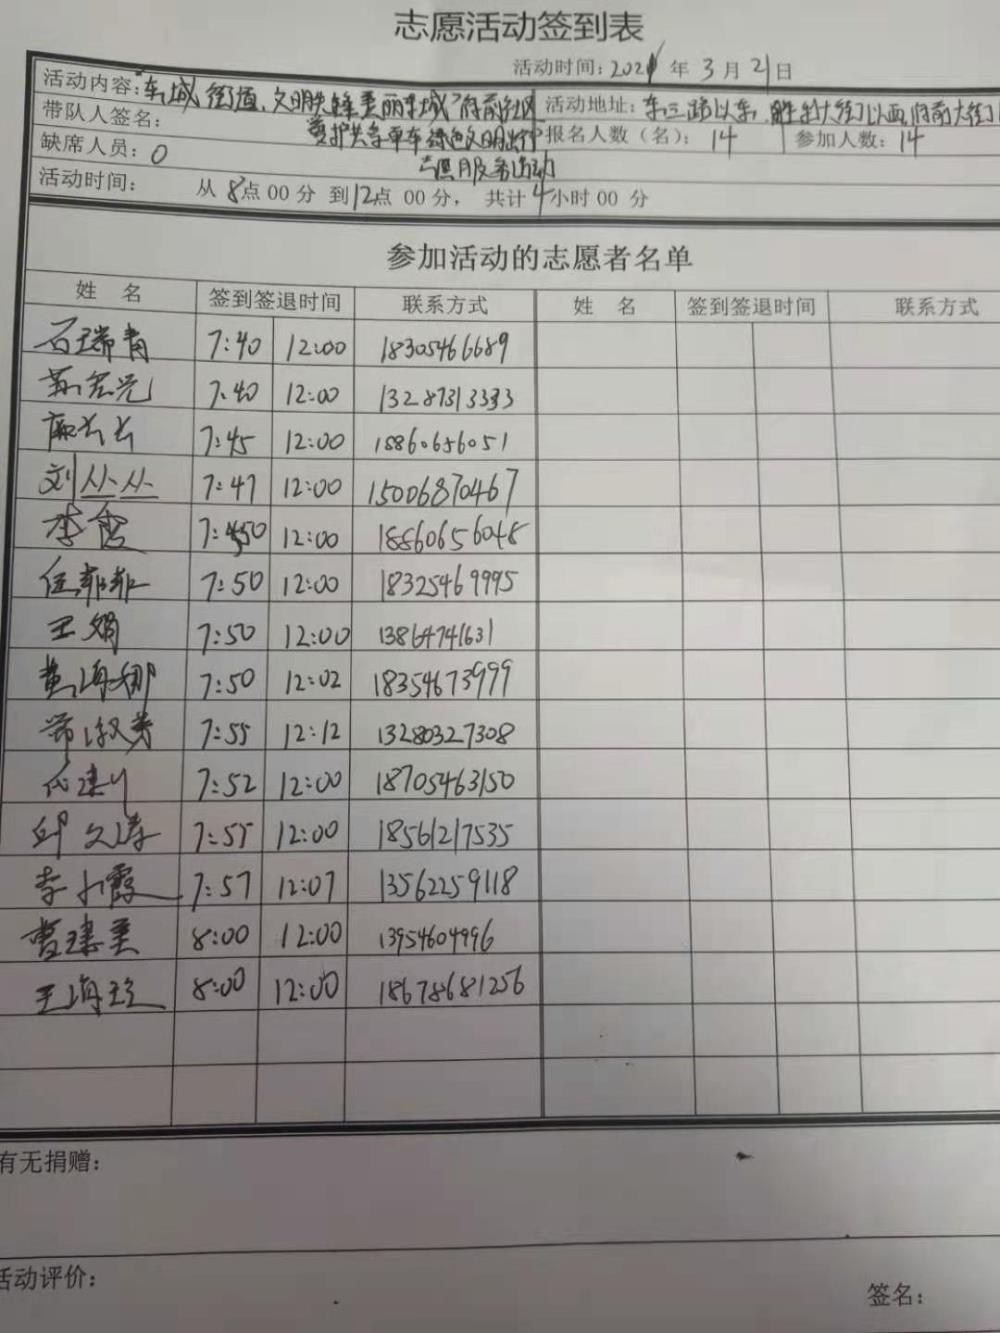 志愿活动签到表
活动时间：2021 年 3 月 21 日
活动内容：东城街道，文明先锋美丽东城"府前社区 活动地址：东三路以东，胜利大街以西，府前大街以
带队人签名： 爱护共享单车绿色文明出行 报名人数（名）：14 参加人数：14
缺席人员：0 志愿服务活动
活动时间： 从 8 点 00 分 到 12 点 00 分， 共计 4 小时 00 分
参加活动的志愿者名单
姓 名 签到签退时间 联系方式 姓 名 签到签退时间 联系方式
石瑞青 7:40 12:00 18305466689
7:40 12:00 13287313333
7:45 12:00 18860656051
刘丛丛 7:47 12:00 15006870467
李雪 7:50 12:00 18860656048
任菲菲 7:50 12:00 18325469995
王娟 7:50 12:00 13864741631
黄海娜 7:50 12:02 18354673999
7:55 12:12 13280327308
7:52 12:00 18705463150
邱文涛 7:55 12:00 18561217535
李小霞 7:57 12:07 13562259118
曹建美 8:00 12:00 13954604996
王海玲 8:00 12:00 18678681256
有无捐赠：
活动评价：
签名：